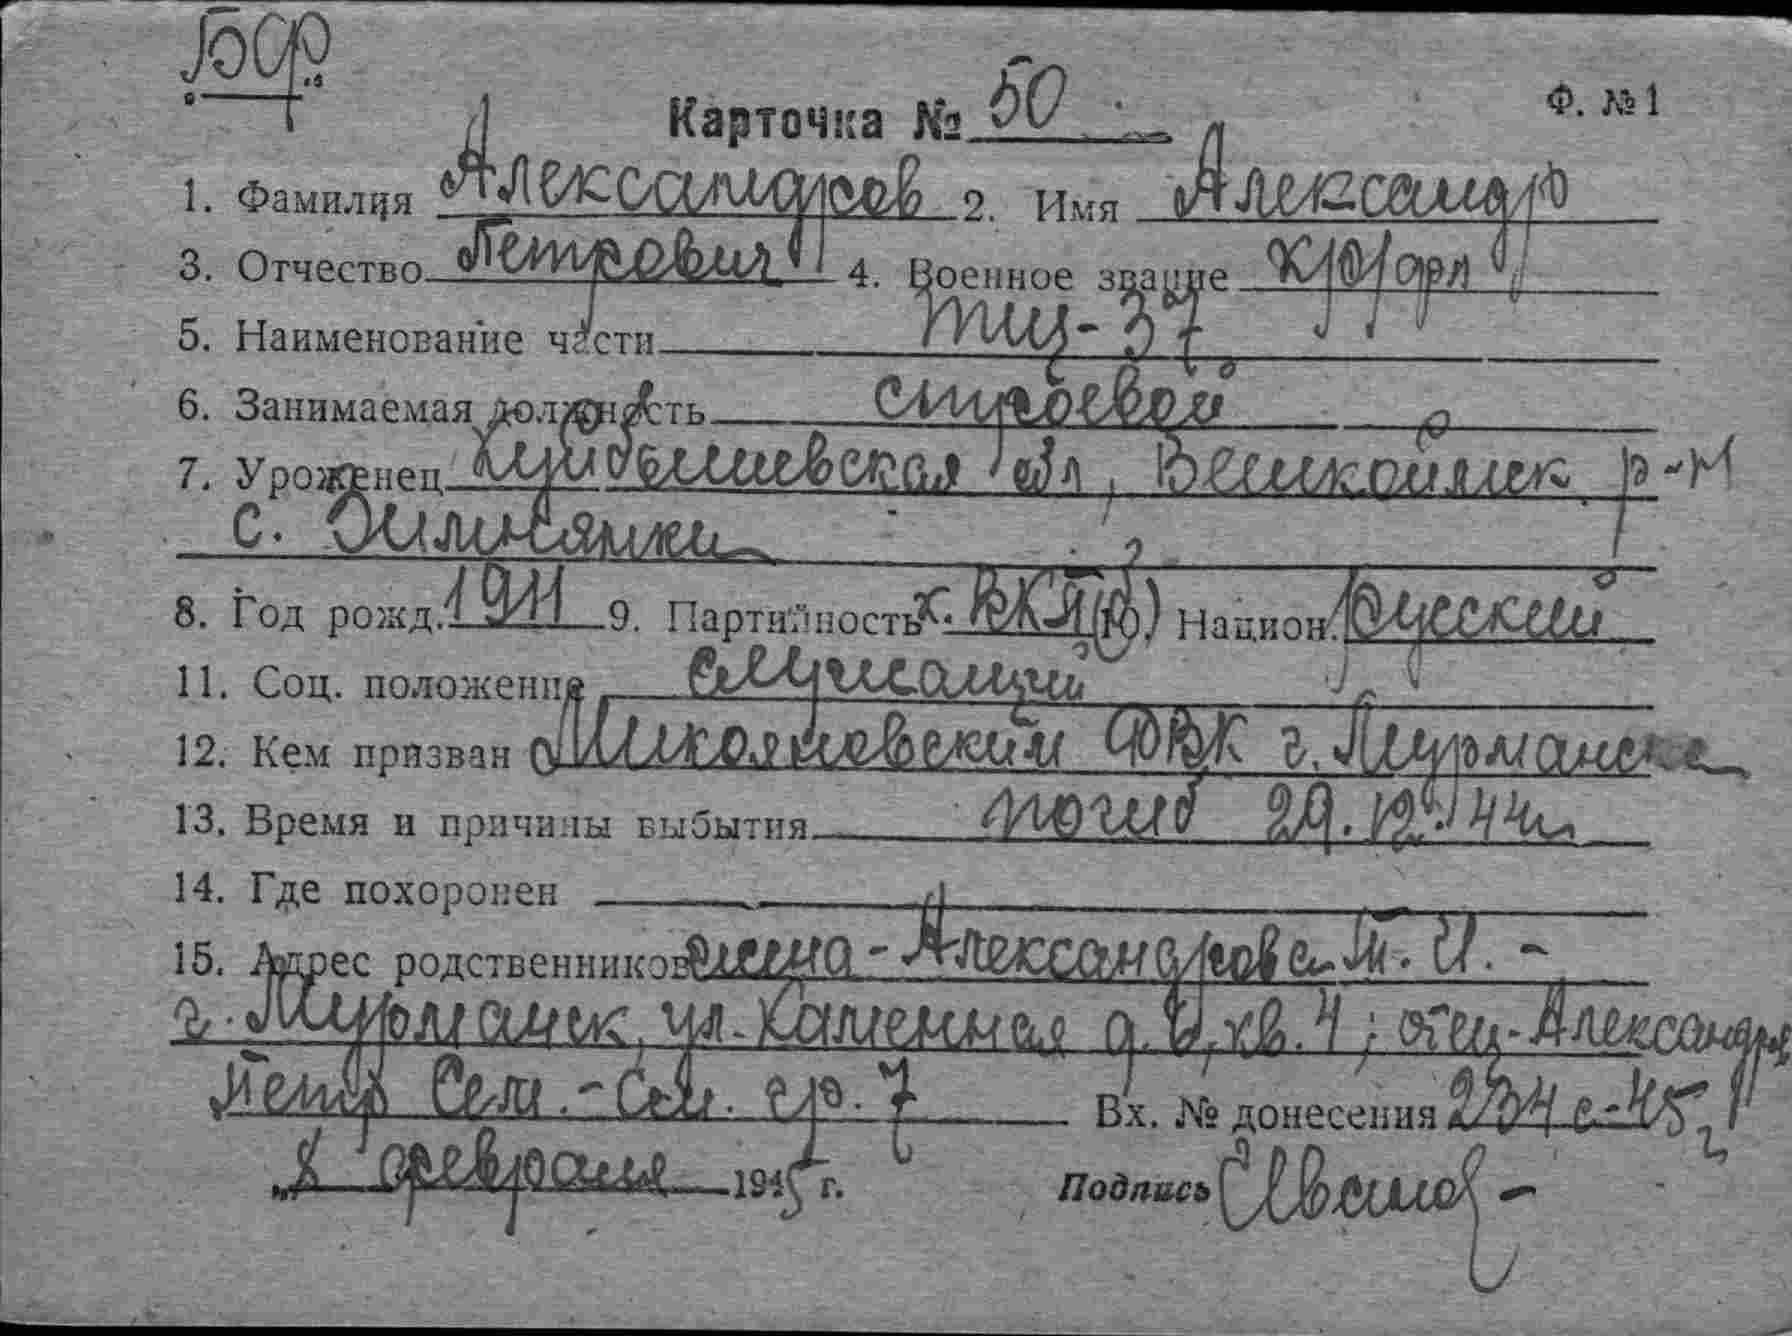 БФ
Карточка № 50
Ф. № 1
1. Фамилия Александров 2. Имя Александр
3. Отчество Петрович 4. Военное звание к/ф
5. Наименование части тщ-37
6. Занимаемая должность строевой
7. Уроженец Куйбышевская обл, р-н
с.
8. Год рожд. 1911 9. Партийность к. ВКП(б) Национ. русский
11. Соц. положение служащий
12. Кем призван Микояновским ФВК г. Мурманска
13. Время и причины выбытия погиб 29.12.44г.
14. Где похоронен
15. Адрес родственников жена - Александрова Т. И. -
г. Мурманск, ул. Каменная д. 6, кв. 4; отец - Александров
Петр Сем. - стр. 7
Вх. № донесения 234с-45г
„8 февраля 1945 г. Подпись Иванов